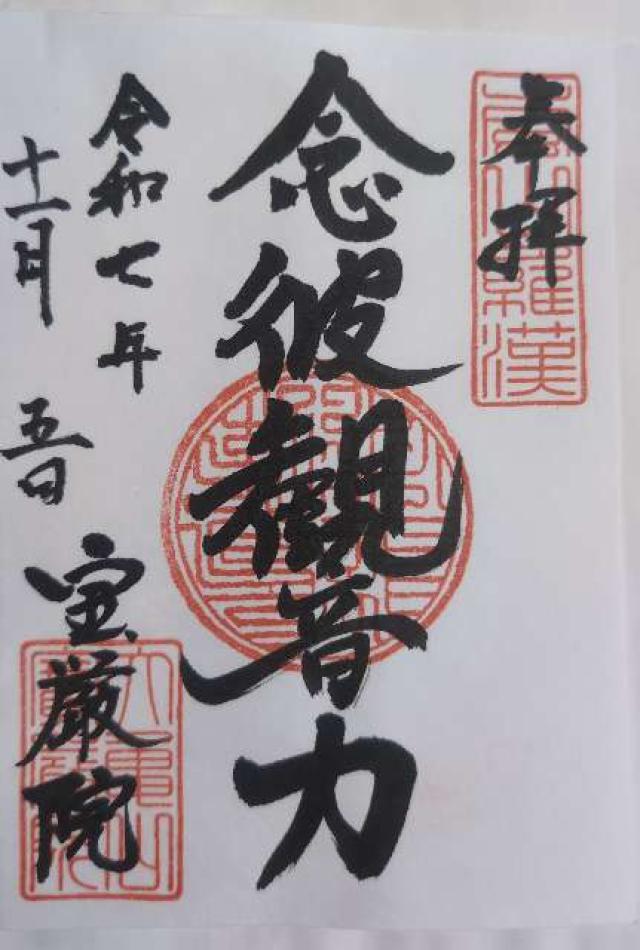 奉拝
念彼観音力
令和七年
十一月 五日
宝厳院